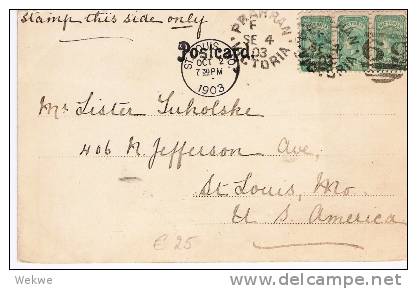 Stamp this side only
PRAHRAN
SE 4
03
VICTORIA
Postcard.
ST. LOUIS, MO.
OCT 2
7 30 PM
1903
Mr Lister Tuholske
406 N. Jefferson Ave,
St Louis, Mo.
U S. America
£ 25
Wekwe
delcampe.net